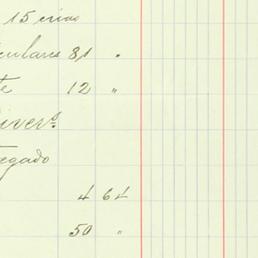 15 crias
iculares 81 "
te 12 "
Divers.
regado
4 64
50 "